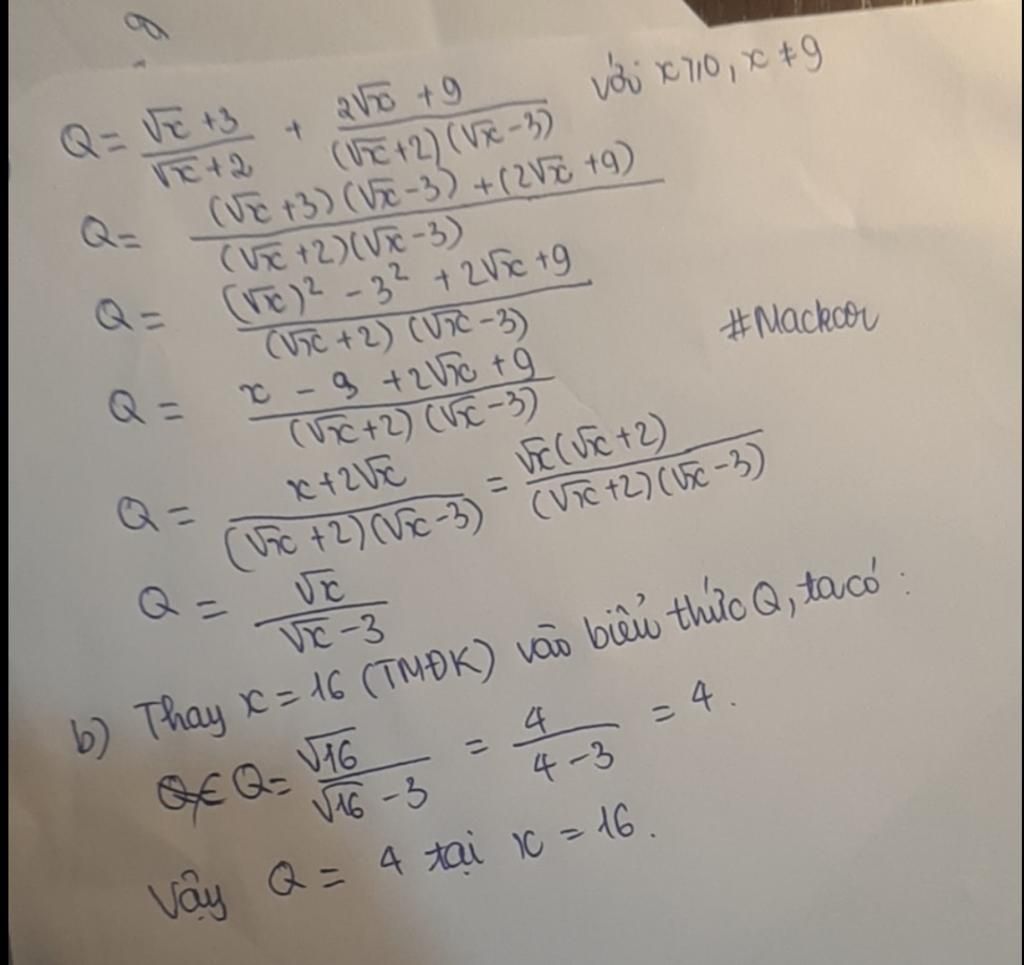 a
Q = \frac{\sqrt{x}+3}{\sqrt{x}+2} + \frac{2\sqrt{x}+9}{(\sqrt{x}+2)(\sqrt{x}-3)} với x ≥ 0, x ≠ 9
Q = \frac{(\sqrt{x}+3)(\sqrt{x}-3)+(2\sqrt{x}+9)}{(\sqrt{x}+2)(\sqrt{x}-3)}
Q = \frac{(\sqrt{x})^2 - 3^2 + 2\sqrt{x}+9}{(\sqrt{x}+2)(\sqrt{x}-3)}
#Mackcor
Q = \frac{x - 9 + 2\sqrt{x}+9}{(\sqrt{x}+2)(\sqrt{x}-3)}
Q = \frac{x+2\sqrt{x}}{(\sqrt{x}+2)(\sqrt{x}-3)} = \frac{\sqrt{x}(\sqrt{x}+2)}{(\sqrt{x}+2)(\sqrt{x}-3)}
Q = \frac{\sqrt{x}}{\sqrt{x}-3}
b) Thay x = 16 (TMĐK) vào biểu thức Q, ta có :
Q = \frac{\sqrt{16}}{\sqrt{16}-3} = \frac{4}{4-3} = 4.
Vậy Q = 4 tại x = 16.